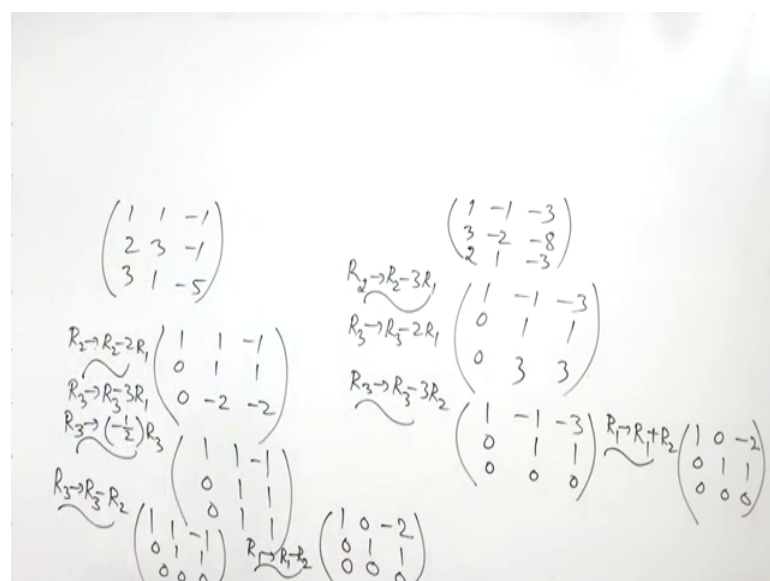 1 1 -1
2 3 -1
3 1 -5
R₂→R₂-2R₁
R₃→R₃-3R₁
1 1 -1
0 1 1
0 -2 -2
R₃→(-1/2)R₃
1 1 -1
0 1 1
0 1 1
R₃→R₃-R₂
1 1 -1
0 1 1
0 0 0
R₁→R₁-R₂
1 0 -2
0 1 1
0 0 0
1 -1 -3
3 -2 -8
2 1 -3
R₂→R₂-3R₁
R₃→R₃-2R₁
1 -1 -3
0 1 1
0 3 3
R₃→R₃-3R₂
1 -1 -3
0 1 1
0 0 0
R₁→R₁+R₂
1 0 -2
0 1 1
0 0 0